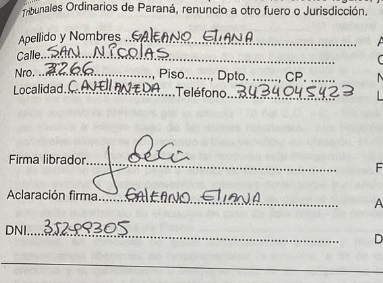 Tribunales Ordinarios de Paraná, renuncio a otro fuero o Jurisdicción.
Apellido y Nombres ..GALEANO ELIANA
Calle..SAN NICOLAS
Nro. ..3266..............., Piso......., Dpto. ......., CP. .......
Localidad.C.AVELLANEDA...Teléfono...3434045423
Firma librador
Aclaración firma.....GALEANO ELIANA
DNI....35299305